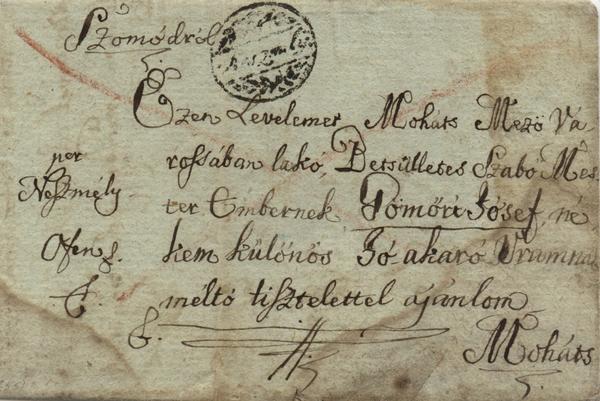 Szomódról
Ezen Levelemet Moháts Mező Vá-
rossában lakó, Betsülletes Szabó Mes-
ter Embernek Tömöri Jósef, né
kem külónós Jó akaró Urumnak
méltó tisztelettel ajánlom
per
Neszmély
Ofen
Moháts